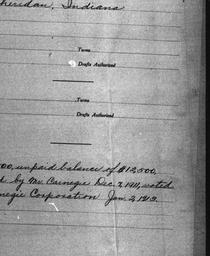 heridan, Indiana
Terms
Drafts Authorized
Terms
Drafts Authorized
00, unpaid balance of $12,500,
d by Mr. Carnegie Dec. 7, 1911, voted
negie Corporation Jan. 2, 1912.